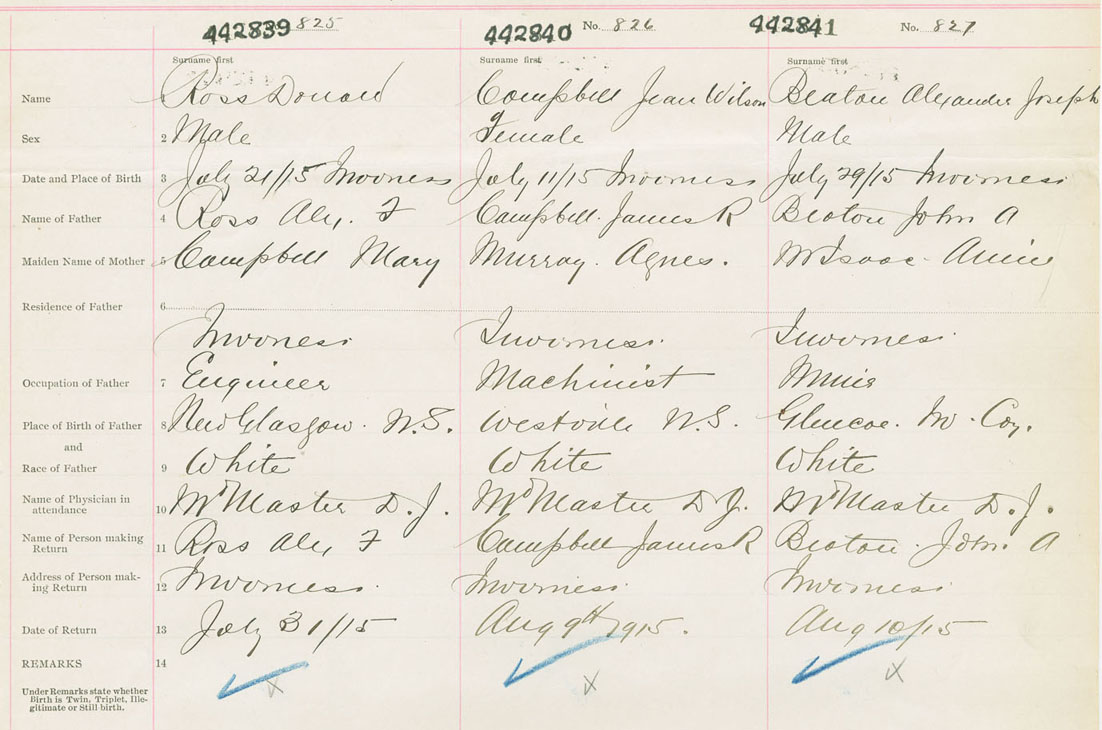 442839 825 442840 No. 826 442841 No. 827
Surname first Surname first Surname first
Name 1 Ross Donald Campbell Jean Wilson Beaton Alexander Joseph
Sex 2 Male Female Male
Date and Place of Birth 3 July 21/15 Inverness July 11/15 Inverness July 29/15 Inverness
Name of Father 4 Ross Alex. F Campbell. James R Beaton John A
Maiden Name of Mother 5 Campbell Mary Murray. Agnes. McIsaac Annie
Residence of Father 6
Inverness Inverness. Inverness
Occupation of Father 7 Engineer Machinist Miner
Place of Birth of Father 8 New Glasgow. N.S. Westville N.S. Glencoe. Inv. Coy.
and
Race of Father 9 White White White
Name of Physician in
attendance 10 McMaster D. J. McMaster D J. McMaster D. J.
Name of Person making
Return 11 Ross Alex F Campbell James R Beaton. John. A
Address of Person mak-
ing Return 12 Inverness. Inverness. Inverness
Date of Return 13 July 31/15 Aug 9th 1915. Aug 10/15
REMARKS 14
X X X
Under Remarks state whether
Birth is Twin, Triplet, Ille-
gitimate or Still birth.